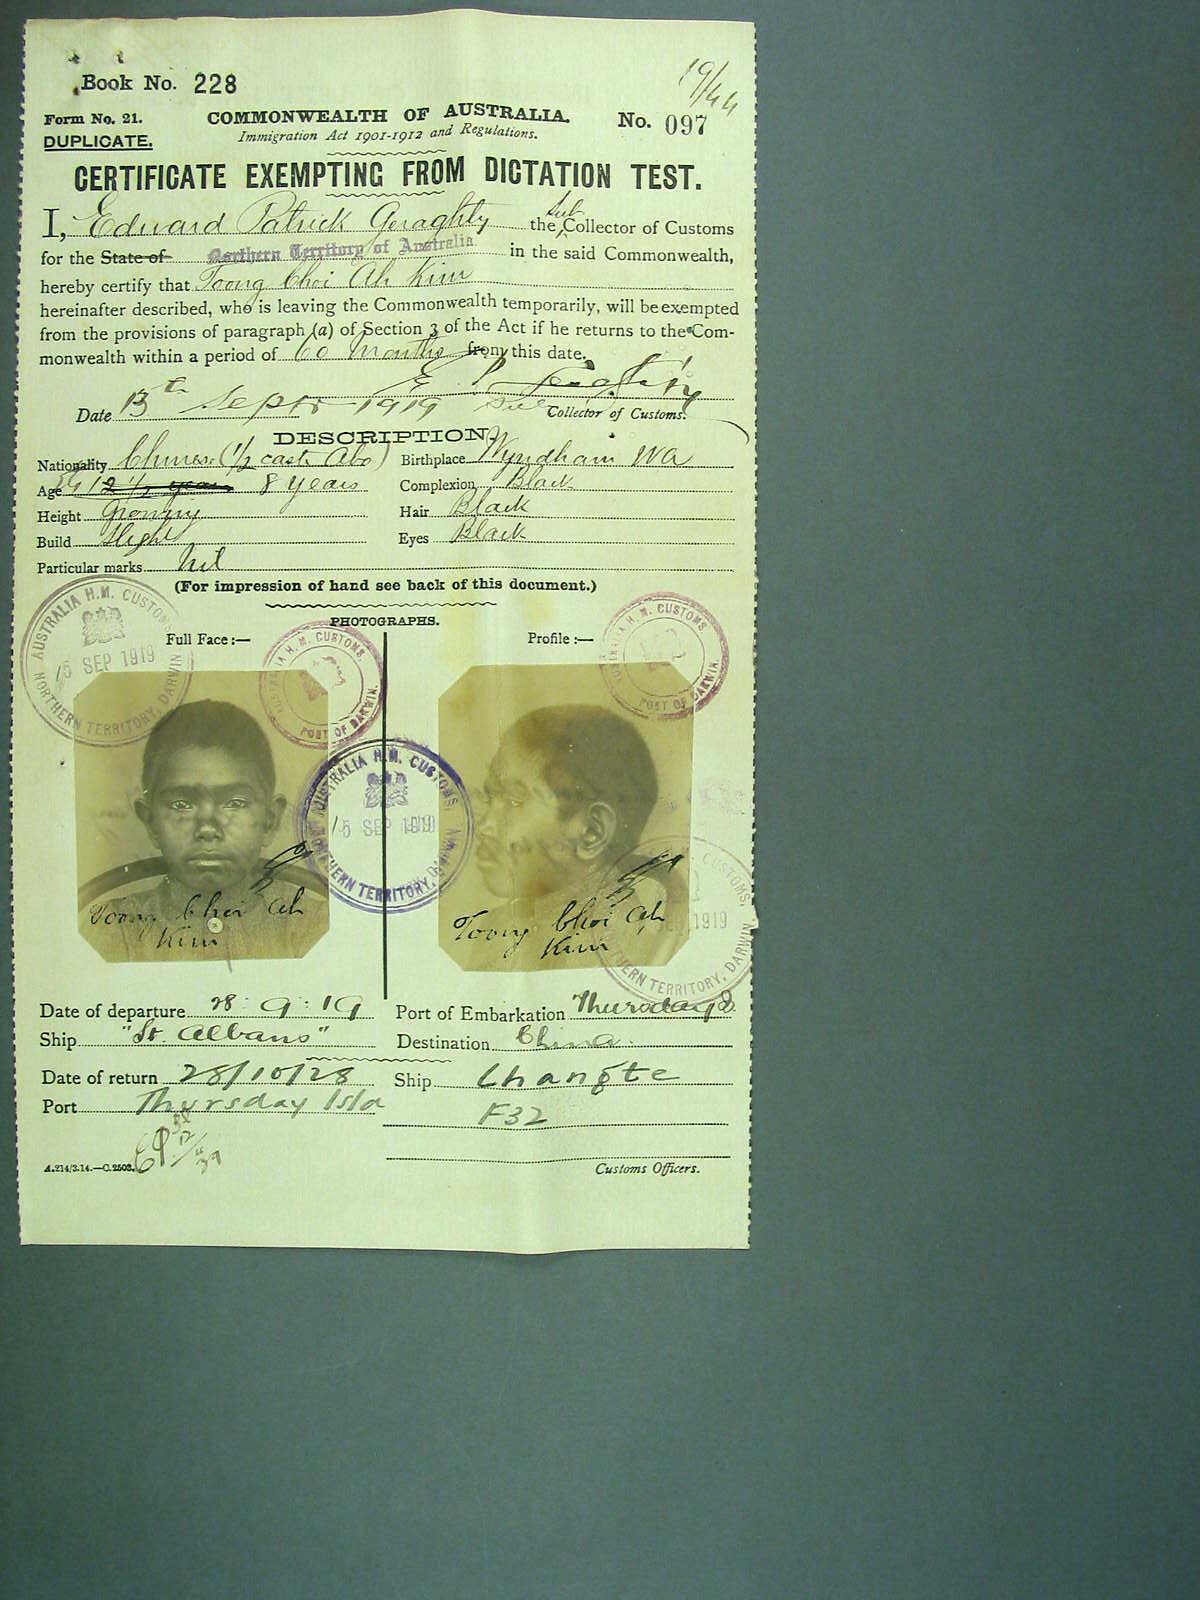 Book No. 228
19/44
Form No. 21.
COMMONWEALTH OF AUSTRALIA.
No. 097
DUPLICATE.
Immigration Act 1901-1912 and Regulations.
CERTIFICATE EXEMPTING FROM DICTATION TEST.
I, Edward Patrick Geraghty the Sub Collector of Customs
for the State of Northern Territory of Australia in the said Commonwealth,
hereby certify that Toong Choi Ah Kim
hereinafter described, who is leaving the Commonwealth temporarily, will be exempted
from the provisions of paragraph (a) of Section 3 of the Act if he returns to the Com-
monwealth within a period of 60 Months from this date.
E P Geraghty
Date 13th Septr 1919 Sub Collector of Customs.
DESCRIPTION.
Nationality Chinese (1/2 caste Abo) Birthplace Wyndham WA
Age 12 1/2 years 8 years Complexion Black
Height Growing Hair Black
Build Slight Eyes Black
Particular marks Nil
(For impression of hand see back of this document.)
PHOTOGRAPHS.
Full Face :— Profile :—
AUSTRALIA H.M. CUSTOMS
15 SEP 1919
NORTHERN TERRITORY, DARWIN
H.M. CUSTOMS.
PORT OF DARWIN.
H.M. CUSTOMS.
PORT OF DARWIN.
AUSTRALIA H.M. CUSTOMS.
15 SEP 1919
NORTHERN TERRITORY, DARWIN
CUSTOMS,
1919
NORTHERN TERRITORY, DARWIN.
Toong Choi Ah
Kim
Toong Choi Ah
Kim
Date of departure 28 : 9 : 19 Port of Embarkation Thursday I.
Ship "St. Albans" Destination China.
Date of return 28/10/28 Ship Changte
Port Thursday Isld F32
A.214/3.14.—C.2503.
Customs Officers.